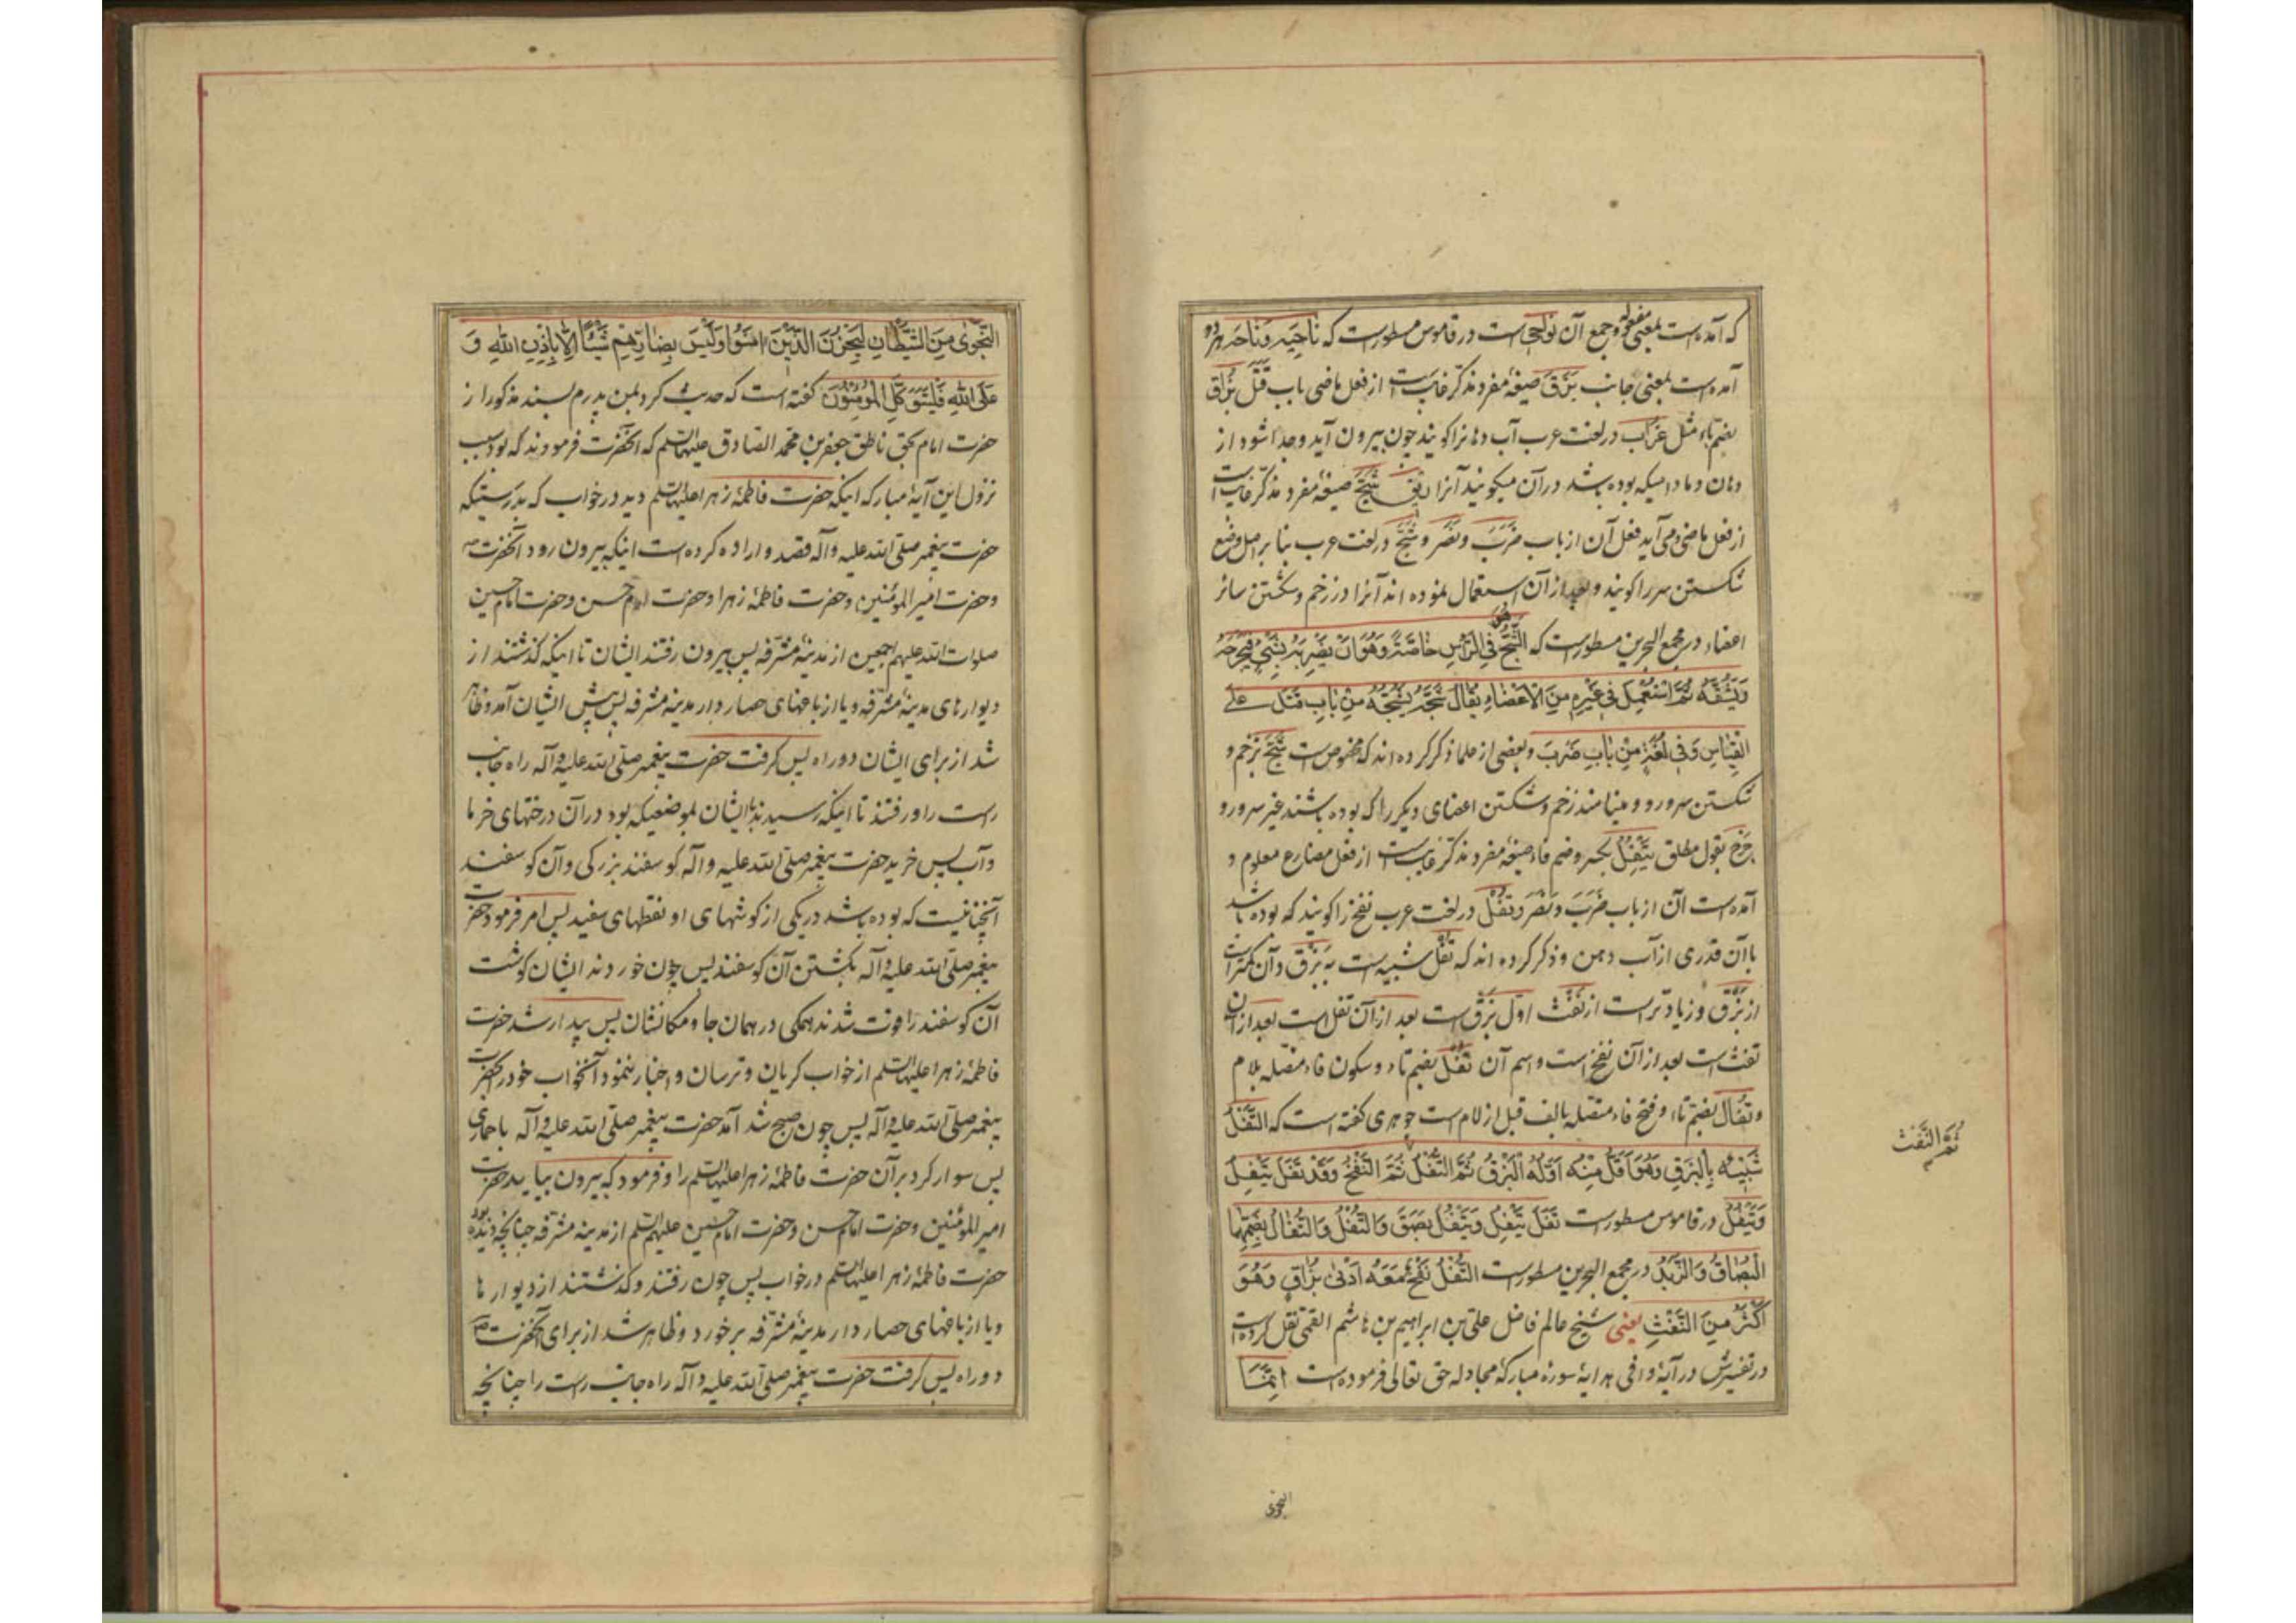 که آمده است بمعنی مفعولة وجمع آن نواحی است در قاموس مسطور است که ناحیه وناحاه هر دو
آمده است بمعنی جانب بَزَقَ صیغهٔ مفرد مذکر غایب است از فعل ماضی باب قتل بزاق
بضم باء مثل غراب در لغت عرب آب دهانرا کویند چون بیرون آید وجدا شود از
دهان ومادامیکه بوده باشد در آن میکویند آنرا ریق شَجَّ صیغهٔ مفرد مذکر غایب است
از فعل ماضی ومی آید فعل آن از باب ضَرَبَ ونَصَرَ وشَجّ در لغت عرب بنا بر اصل وضع
شکستن سر را کویند وبعد از آن استعمال نموده اند آنرا در زخم وشکستن سائر
اعضاء در مجمع البحرین مسطور است که الشَّجُّ هُوَ فِی الرَّأسِ خاصَّةً وَهُوَ اَنْ یَضْرِبَهُ بِشَیْءٍ فَیَجْرَحَهُ
وَیَشُقَّهُ ثُمَّ اسْتُعْمِلَ فی غَیْرِهِ مِنَ الْاَعْضاءِ یُقالُ شَجَّهُ یَشُجُّهُ مِنْ بابِ قَتَلَ عَلَی
القِیاسِ وَفی لُغَةٍ مِنْ بابِ ضَرَبَ وبعضی از علما ذکر کرده اند که مخصوص است شَجّ بزخم و
شکستن سر ورو ومینامند زخم وشکستن اعضای دیکر را که بوده باشند غیر سر ورو
جرح بقول مطلق یَتْفُِلُ بکسر وضم فاء صیغهٔ مفرد مذکر غایب است از فعل مضارع معلوم و
آمده است آن از باب ضَرَبَ ونَصَرَ وتَفْل در لغت عرب نفخ را کویند که بوده باشد
با آن قدری از آب دهن وذکر کرده اند که تفل شبیه است به بَزْق وآن کمتر است
از بَزْق وزیادتر است از نَفْث اوّل بزق است بعد از آن تفل است بعد از آن
نفث است بعد از آن نفخ است واسم آن تُفْل بضم تاء وسکون فاء متصله بلام
وتُفال بضم تاء وفتح فاء متصله بالف قبل از لام است جوهری کفته است که التَّفْلُ
شَبیهٌ بِالْبَزْقِ وَهُوَ اَقَلُّ مِنْهُ اَوَّلُهُ الْبَزْقُ ثُمَّ التَّفْلُ ثُمَّ النَّفْخُ وَقَدْ تَفَلَ یَتْفِلُ
ثُمَّ النَّفْثُ
وَیَتْفُلُ در قاموس مسطور است تَفَلَ یَتْفِلُ وَیَتْفُلُ بَصَقَ وَالتُّفْلُ وَالتُّفالُ بِضَمِّهِما
الْبُصاقُ وَالزَّبَدُ در مجمع البحرین مسطور است التَّفْلُ نَفْخٌ مَعَهُ اَدْنیٰ بُزاقٍ وَهُوَ
اَکْثَرُ مِنَ النَّفْثِ یعنی شیخ عالم فاضل علی بن ابراهیم بن هاشم القمی نقل کرده است
در تفسیرش در آیهٔ وافی هدایهٔ سورهٔ مبارکهٔ مجادله حق تعالی فرموده است اِنَّمَا
النجوی
النَّجْوٰی مِنَ الشَّیْطانِ لِیَحْزُنَ الَّذینَ امَنُوا وَلَیْسَ بِضارِّهِمْ شَیْئًا اِلّا بِاِذْنِ اللهِ وَ
عَلَی اللهِ فَلْیَتَوَکَّلِ الْمُؤْمِنُونَ کفته است که حدیث کرد بمن پدرم بسند مذکور از
حضرت امام بحق ناطق جعفر بن محمد الصادق علیهما السلم که آنحضرت فرمودند که بود سبب
نزول این آیهٔ مبارکه اینکه حضرت فاطمهٔ زهرا علیها السلم دید در خواب که بدرستیکه
حضرت پیغمبر صلی الله علیه وآله قصد واراده کرده است اینکه بیرون رود آنحضرت ص
وحضرت امیر المؤمنین وحضرت فاطمهٔ زهرا وحضرت امام حسن وحضرت امام حسین
صلوات الله علیهم اجمعین از مدینهٔ مشرّفه پس بیرون رفتند ایشان تا اینکه کذشتند از
دیوارهای مدینهٔ مشرّفه ویا از باغهای حصار دار مدینهٔ مشرفه پس پیش ایشان آمد وظاهر
شد از برای ایشان دو راه پس کرفت حضرت پیغمبر صلی الله علیه وآله راه جانب
راست را ورفتند تا اینکه رسیدند با ایشان بموضعیکه بود در آن درختهای خرما
وآب پس خرید حضرت پیغمبر صلی الله علیه وآله کوسفند بزرکی وآن کوسفند
آنچنانیست که بوده باشد در یکی از کوشهای او نقطهای سفید پس امر فرمود حضرت
پیغمبر صلی الله علیه وآله بکشتن آن کوسفند پس چون خوردند ایشان کوشت
آن کوسفند را فوت شدند همکی در همان جا ومکانشان پس بیدار شد حضرت
فاطمهٔ زهرا علیها السلم از خواب کریان وترسان واخبار ننمود آنخواب خود را بحضرت
پیغمبر صلی الله علیه وآله پس چون صبح شد آمد حضرت پیغمبر صلی الله علیه وآله با حماری
پس سوار کرد بر آن حضرت فاطمهٔ زهرا علیها السلم را وفرمود که بیرون بیاید حضرت
امیر المؤمنین وحضرت امام حسن وحضرت امام حسین علیهم السلم از مدینه مشرّفه چنانچه دیده بود
حضرت فاطمهٔ زهرا علیها السلم در خواب پس چون رفتند وکذشتند از دیوارها
ویا از باغهای حصار دار مدینهٔ مشرّفه برخورد وظاهر شد از برای آنحضرت ص
دو راه پس کرفت حضرت پیغمبر صلی الله علیه وآله راه جانب راست را چنانچه